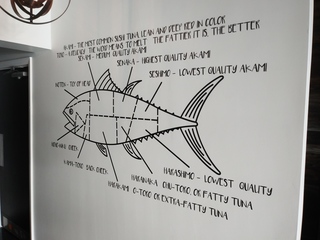 AKAMI - THE MOST COMMON SUSHI TUNA, LEAN AND DEEP RED IN COLOR
TORO - LITERALLY THE WORD MEANS TO MELT THE FATTIER IT IS, THE BETTER
SENAMI - MEDIUM QUALITY AKAMI
SENAKA - HIGHEST QUALITY AKAMI
SESHIMO - LOWEST QUALITY AKAMI
NOTEN - TOP OF HEAD
CHEEK
KAMA-TORO BACK CHEEK
HARASHIMO - LOWEST QUALITY
HARANAKA CHU-TORO, OR FATTY TUNA
HARAKAMI O-TORO OR EXTRA-FATTY TUNA